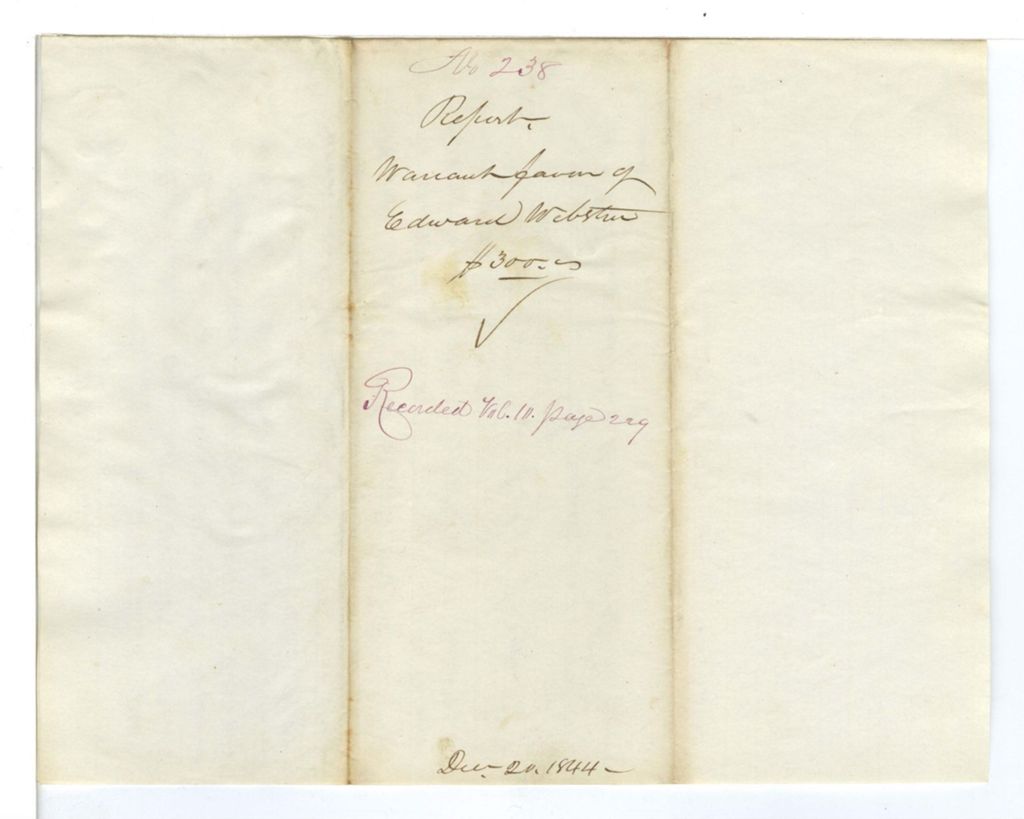 No 238
Report.
Warrant favor of
Edward Webster
$300.00
Recorded Vol. 10. page 229
Dec. 20. 1844